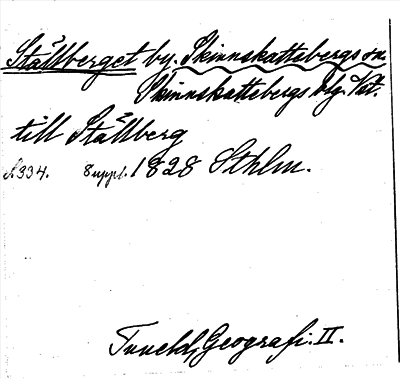 Ställberget by. Skinnskattebergs sn,
Skinnskattebergs blg. Väst.
till Ställberg
s. 334. 8 uppl. 1828 Sthlm.
Tuneld, Geografi. II.